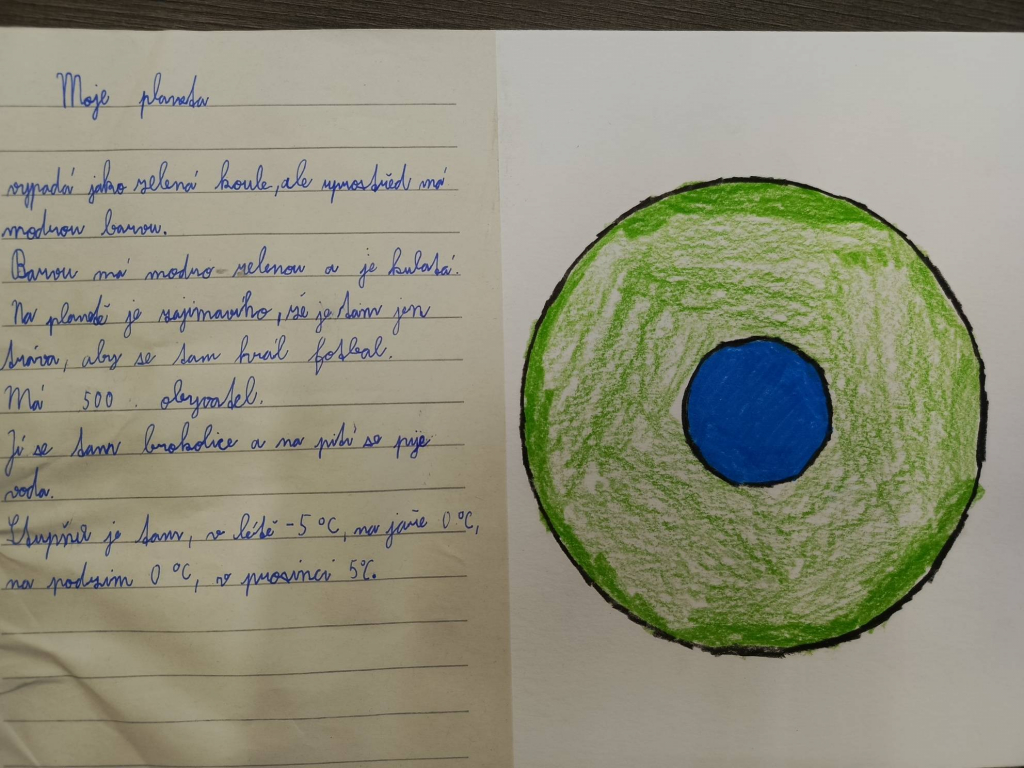 Moje planeta
vypadá jako zelená koule, ale uprostřed má
modrou barvu.
Barvu má modro-zelenou a je kulatá.
Na planetě je zajímavího, že je tam jen
tráva, aby se tam hrál fotbal.
Má 500 obyvatel.
Jí se tam brokolice a na pití se pije
voda.
Stupňů je tam, v létě -5 °C, na jaře 0 °C,
na podzim 0 °C, v prosinci 5°C.